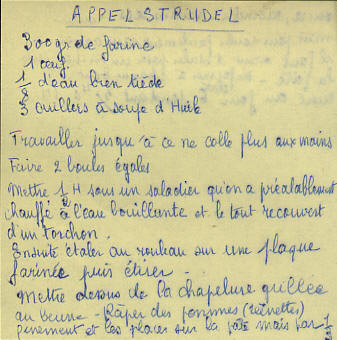 APPELSTRUDEL
300gr de farine
1 œuf.
1/8 d'eau bien tiède
3 cuillers à soupe d'Huile
Travailler jusqu'à ce ne colle plus aux mains
Faire 2 boules égales
Mettre 1/2 H sous un saladier qu'on a préalablement
chauffé à l'eau bouillante et le tout recouvert
d'un torchon.
Ensuite étaler au rouleau sur une plaque
farinée puis étirer.
Mettre dessus de la chapelure grillée
au beurre - Râper des pommes (reinettes)
finement et les placer sur la pâte mais par 1/2